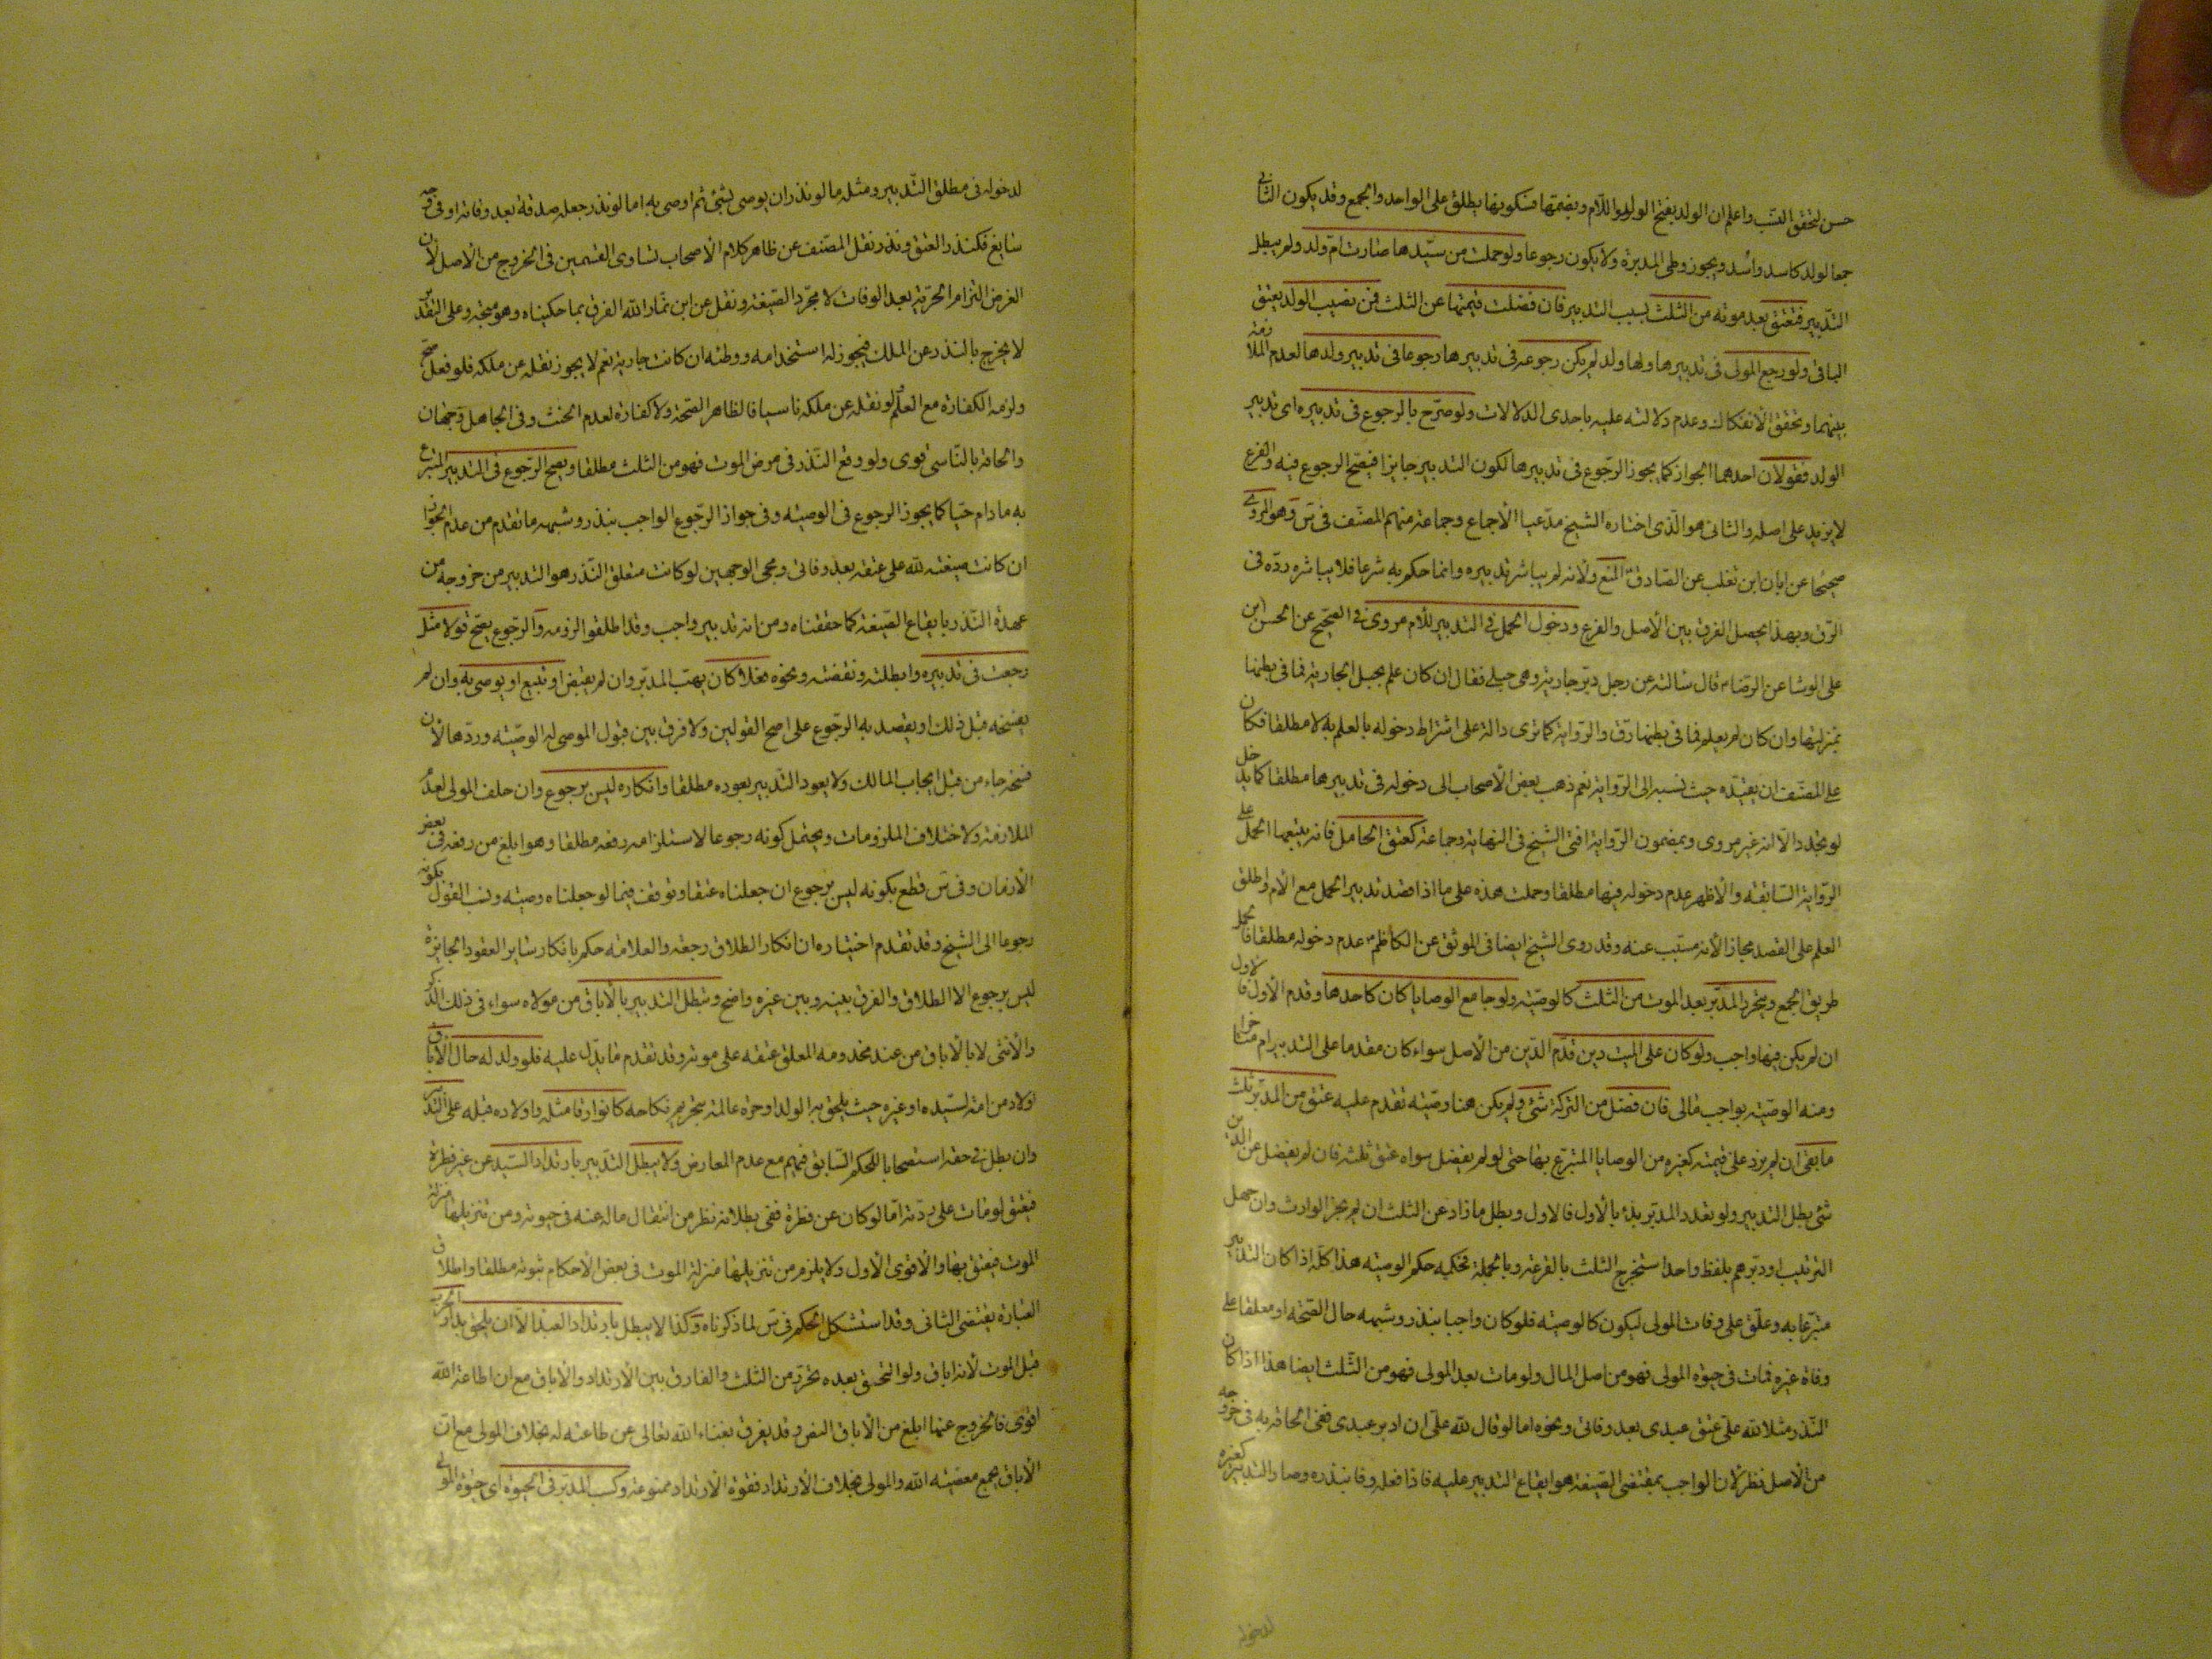 حسن لتحقق النسب واعلم ان الولد بفتح الواو واللام وبضمها فسكونها يطلق على الواحد والجمع وقد يكون الثاني
جمعا لولد كاسد واسد ويجوز وطى المدبرة ولا يكون رجوعا ولو حملت من سيدها صارت ام ولد ولم يبطل
التدبير فتعتق بعد موته من الثلث بسبب التدبير فان فضلت قيمتها عن الثلث فمن نصيب الولد يعتق
الباقى ولو رجع المولى فى تدبيرها ولها ولد لم يكن رجوعه فى تدبيرها رجوعا فى تدبير ولدها لعدم الملازمة
بينهما وتحقق الانفكاك وعدم دلالته عليه باحدى الدلالات ولو صرح بالرجوع فى تدبيره اى تدبير
الولد فقولان احدهما الجواز كما يجوز الرجوع فى تدبيرها لكون التدبير جايزا فيصح الرجوع فيه والفرع
لا يزيد على اصله والثانى هو الذى اختاره الشيخ مدعيا الاجماع وجماعة منهم المصنف فى س وهو المروى
صحيحا عن ابان ابن تغلب عن الصادق ع المنع ولانه لم يباشر تدبيره وانما حكم به شرعا فلا يباشر رده فى
الرق وبهذا يحصل الفرق بين الاصل والفرع ودخول الحمل فى التدبير للام مروى فى الصحيح عن الحسن ابن
على الوشا عن الرضا ع قال سالته عن رجل دبر جارية وهى حبلى فقال ان كان علم بحبل الجارية فما فى بطنها
بمنزلتها وان كان لم يعلم فما فى بطنها رق والرواية كما ترى دالة على اشتراط دخوله بالعلم به لا مطلقا فكان
على المصنف ان يقيده حيث نسبه الى الرواية نعم ذهب بعض الاصحاب الى دخوله فى تدبيرها مطلقا كما يدخل
لو تجدد الا انه غير مروى وبمضمون الرواية افتى الشيخ فى النهاية وجماعة كعتق الحامل فانه يتبعها الحمل على
الرواية السابقة والاظهر عدم دخوله فيها مطلقا وحملت هذه على ما اذا قصد تدبير الحمل مع الام واطلق
العلم على القصد مجازا لانه مسبب عنه وقد روى الشيخ ايضا فى الموثق عن الكاظم ع عدم دخوله مطلقا فالحمل
طريق الجمع ويتحرر المدبر بعد الموت من الثلث كالوصية ولو جامع الوصايا كان كاحدها وقدم الاول فالاول
ان لم يكن فيها واجب ولو كان على الميت دين قدم الدين من الاصل سواء كان مقدما على التدبير ام متاخرا
ومنه الوصية بواجب مالى فان فضل من التركة شئ ولم يكن هنا وصية تقدم عليه عتق من المدبر ثلث
ما بقى ان لم يزد على قيمته كغيره من الوصايا المتبرع بها حتى لو لم يفضل سواه عتق ثلثه فان لم يفضل عن الدين
شئ بطل التدبير ولو تعدد المدبر بدئ بالاول فالاول وبطل ما زاد عن الثلث ان لم يجز الوارث وان جهل
الترتيب او دبرهم بلفظ واحد استخرج الثلث بالقرعة وبالجملة فحكمه حكم الوصية هذا كله اذا كان التدبير
متبرعا به وعلق على وفات المولى ليكون كالوصية فلو كان واجبا بنذر وشبهه حال الصحة او معلقا على
وفاة غيره فمات فى حيوة المولى فهو من اصل المال ولو مات بعد المولى فهو من الثلث ايضا هذا اذا كان
النذر مثلا لله على عتق عبدى بعد وفاتى ونحوه اما لو قال لله على ان ادبر عبدى ففى الحاقه به فى خروجه
من الاصل نظر لان الواجب بمقتضى الصيغة هو ايقاع التدبير عليه فاذا فعله وفا بنذره وصار التدبير كغيره
لدخوله
لدخوله فى مطلق التدبير ومثله ما لو نذر ان يوصى بشئ ثم اوصى به اما لو نذر جعله صدقة بعد وفاته او فى وجه
سايغ فكنذر العتق ونذر نقل المصنف عن ظاهر كلام الاصحاب تساوى القسمين فى الخروج من الاصل لان
الغرض التزام الحرية بعد الوفات لا مجرد الصيغة ونقل عن ابن نما ره الله الفرق بما حكيناه وهو متجه وعلى التقديرين
لا يخرج بالنذر عن الملك فيجوز له استخدامه ووطئه ان كانت جارية نعم لا يجوز نقله عن ملكه فلو فعل صح
ولزمه الكفارة مع العلم ولو نقله عن ملكه ناسيا فالظاهر الصحة ولا كفارة لعدم الحنث وفى الجاهل وجهان
والحاقه بالناسى قوى ولو وقع النذر فى مرض الموت فهو من الثلث مطلقا ويصح الرجوع فى التدبير المتبرع
به ما دام حيا كما يجوز الرجوع فى الوصية وفى جواز الرجوع الواجب بنذر وشبهه ما تقدم من عدم الجواز
ان كانت صيغته لله على عتقه بعد وفاتى ومجى الوجهين لو كانت متعلق النذر هو التدبير من خروجه من
عهدة النذر بايقاع الصيغة كما حققناه ومن انه تدبير واجب وقد اطلقوا لزومه والرجوع يصح قولا مثل
رجعت فى تدبيره وابطلته ونقضته ونحوه فعلا كان يهب المدبر وان لم يقبض او يبيع او يوصى به وان لم
يفسخه قبل ذلك او يقصد به الرجوع على اصح القولين ولا فرق بين قبول الموصى له الوصية وردها لان
فسخه جاء من قبل ايجاب المالك ولا يعود التدبير بعوده مطلقا وانكاره ليس برجوع وان حلف المولى لعدم
الملازمة ولاختلاف الملزومات ويحتمل كونه رجوعا لاستلزامه رفعه مطلقا وهو ابلغ من رفعه فى بعض
الازمان وفى س قطع بكونه ليس برجوع ان جعلناه عتقا وتوقف فيما لو جعلناه وصية ونسب القول بكونه
رجوعا الى الشيخ وقد تقدم اختياره ان انكار الطلاق رجعة والعلامة حكم بانكار ساير العقود الجايزة
ليس برجوع الا الطلاق والفرق بينه وبين غيره واضح ويبطل التدبير بالاباق من مولاه سواء فى ذلك الذكر
والانثى لا بالاباق من عند مخدومه المعلق عتقه على موته وقد تقدم ما يدل عليه فلو ولد له حال الاباق
اولاد من امة لسيده او غيره حيث يلحق به الولد او حرة عالمة بتحريم نكاحه كانوا رقا مثله واولاده قبله على التدبير
وان بطل فى حقه استصحابا للحكم السابق فيهم مع عدم المعارض ولا يبطل التدبير بارتداد السيد عن غير فطرة
فيعتق لو مات على ردته اما لو كان عن فطرة ففى بطلانه نظر من انتقال ماله عنه فى حيوته ومن تنزيلها منزلة
الموت فيعتق بها والاقوى الاول ولا يلزم من تنزيلها منزلة الموت فى بعض الاحكام ثبوته مطلقا واطلاق
العبارة يقتضى الثانى وقد استشكل الحكم فى س لما ذكرناه وكذا لا يبطل بارتداد العبد الا ان يلحق بدار الحرب
قبل الموت لانه اباق ولو التحق بعده تحرر من الثلث والفارق بين الارتداد والاباق مع ان اطاعة الله
اقوى فالخروج عنها ابلغ من الاباق النص وقد يفرق بغناء الله تعالى عن طاعته له بخلاف المولى مع ان
الاباق يجمع معصية الله والمولى بخلاف الارتداد فقوة الارتداد ممنوعة وكسب المدبر فى الحيوة اى حيوة المولى